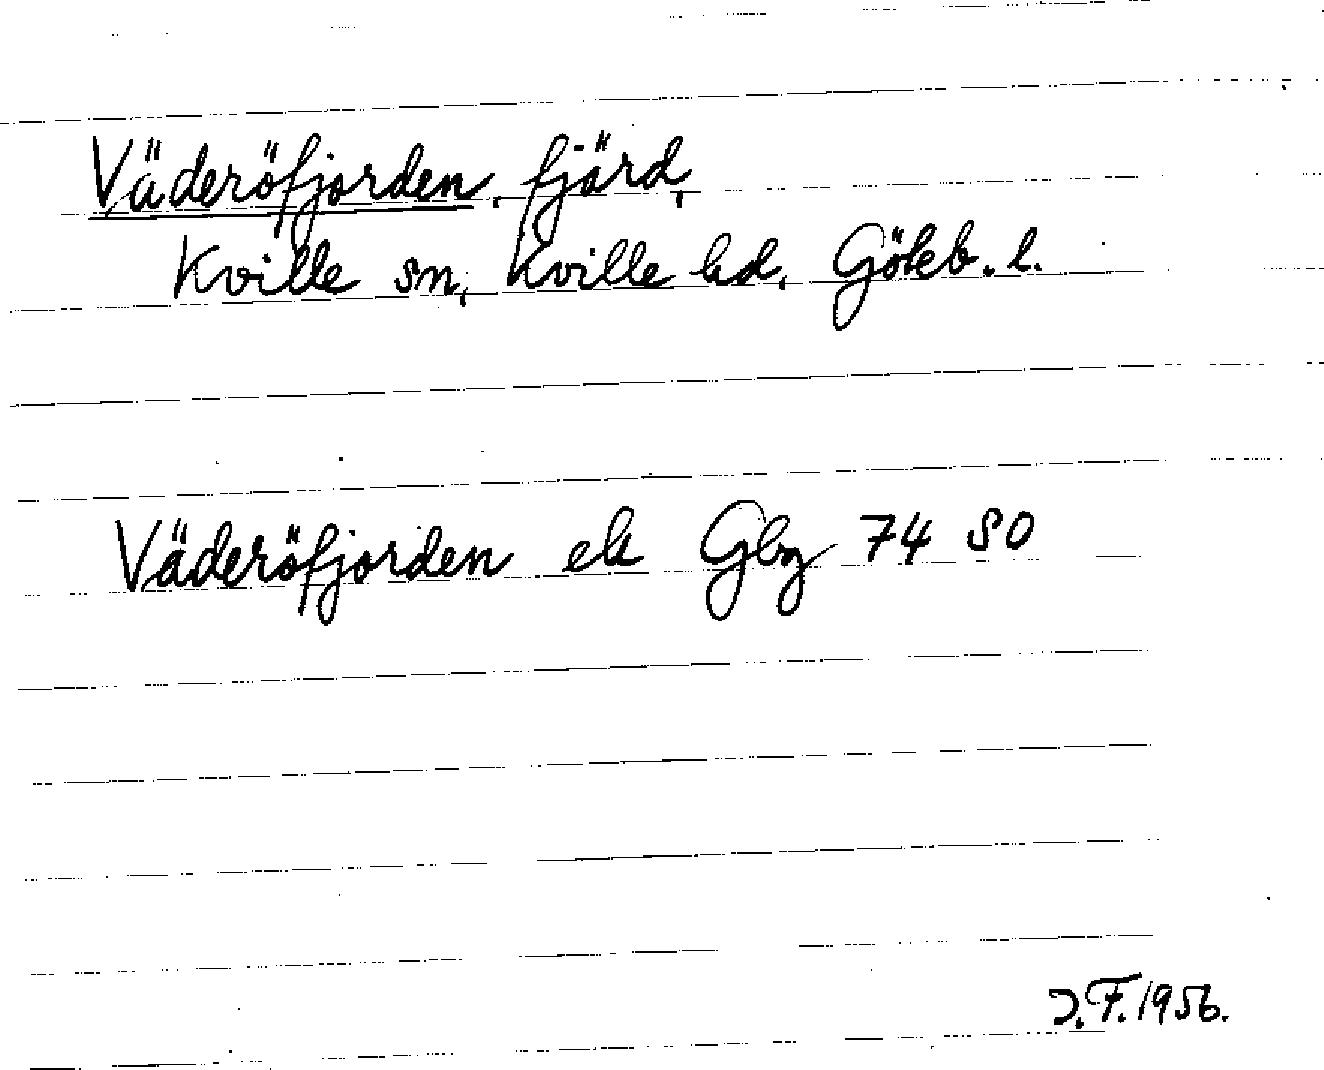 Väderöfjorden, fjörd,
Kville sn, Kville hd, Göteb. l.
Väderöfjorden ek Gbg 74 SO
J.F. 1956.